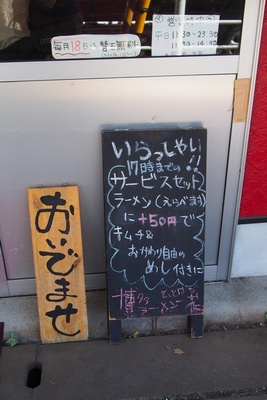 毎月18日は替玉無料
営業時間
平日 11:30~23:30
おいでませ
いらっしゃい!!
17時までの
サービスセット
ラーメン(えらべます)
に+50円で
キムチ&
おかわり自由の
めし付きに
博多
ラーメン